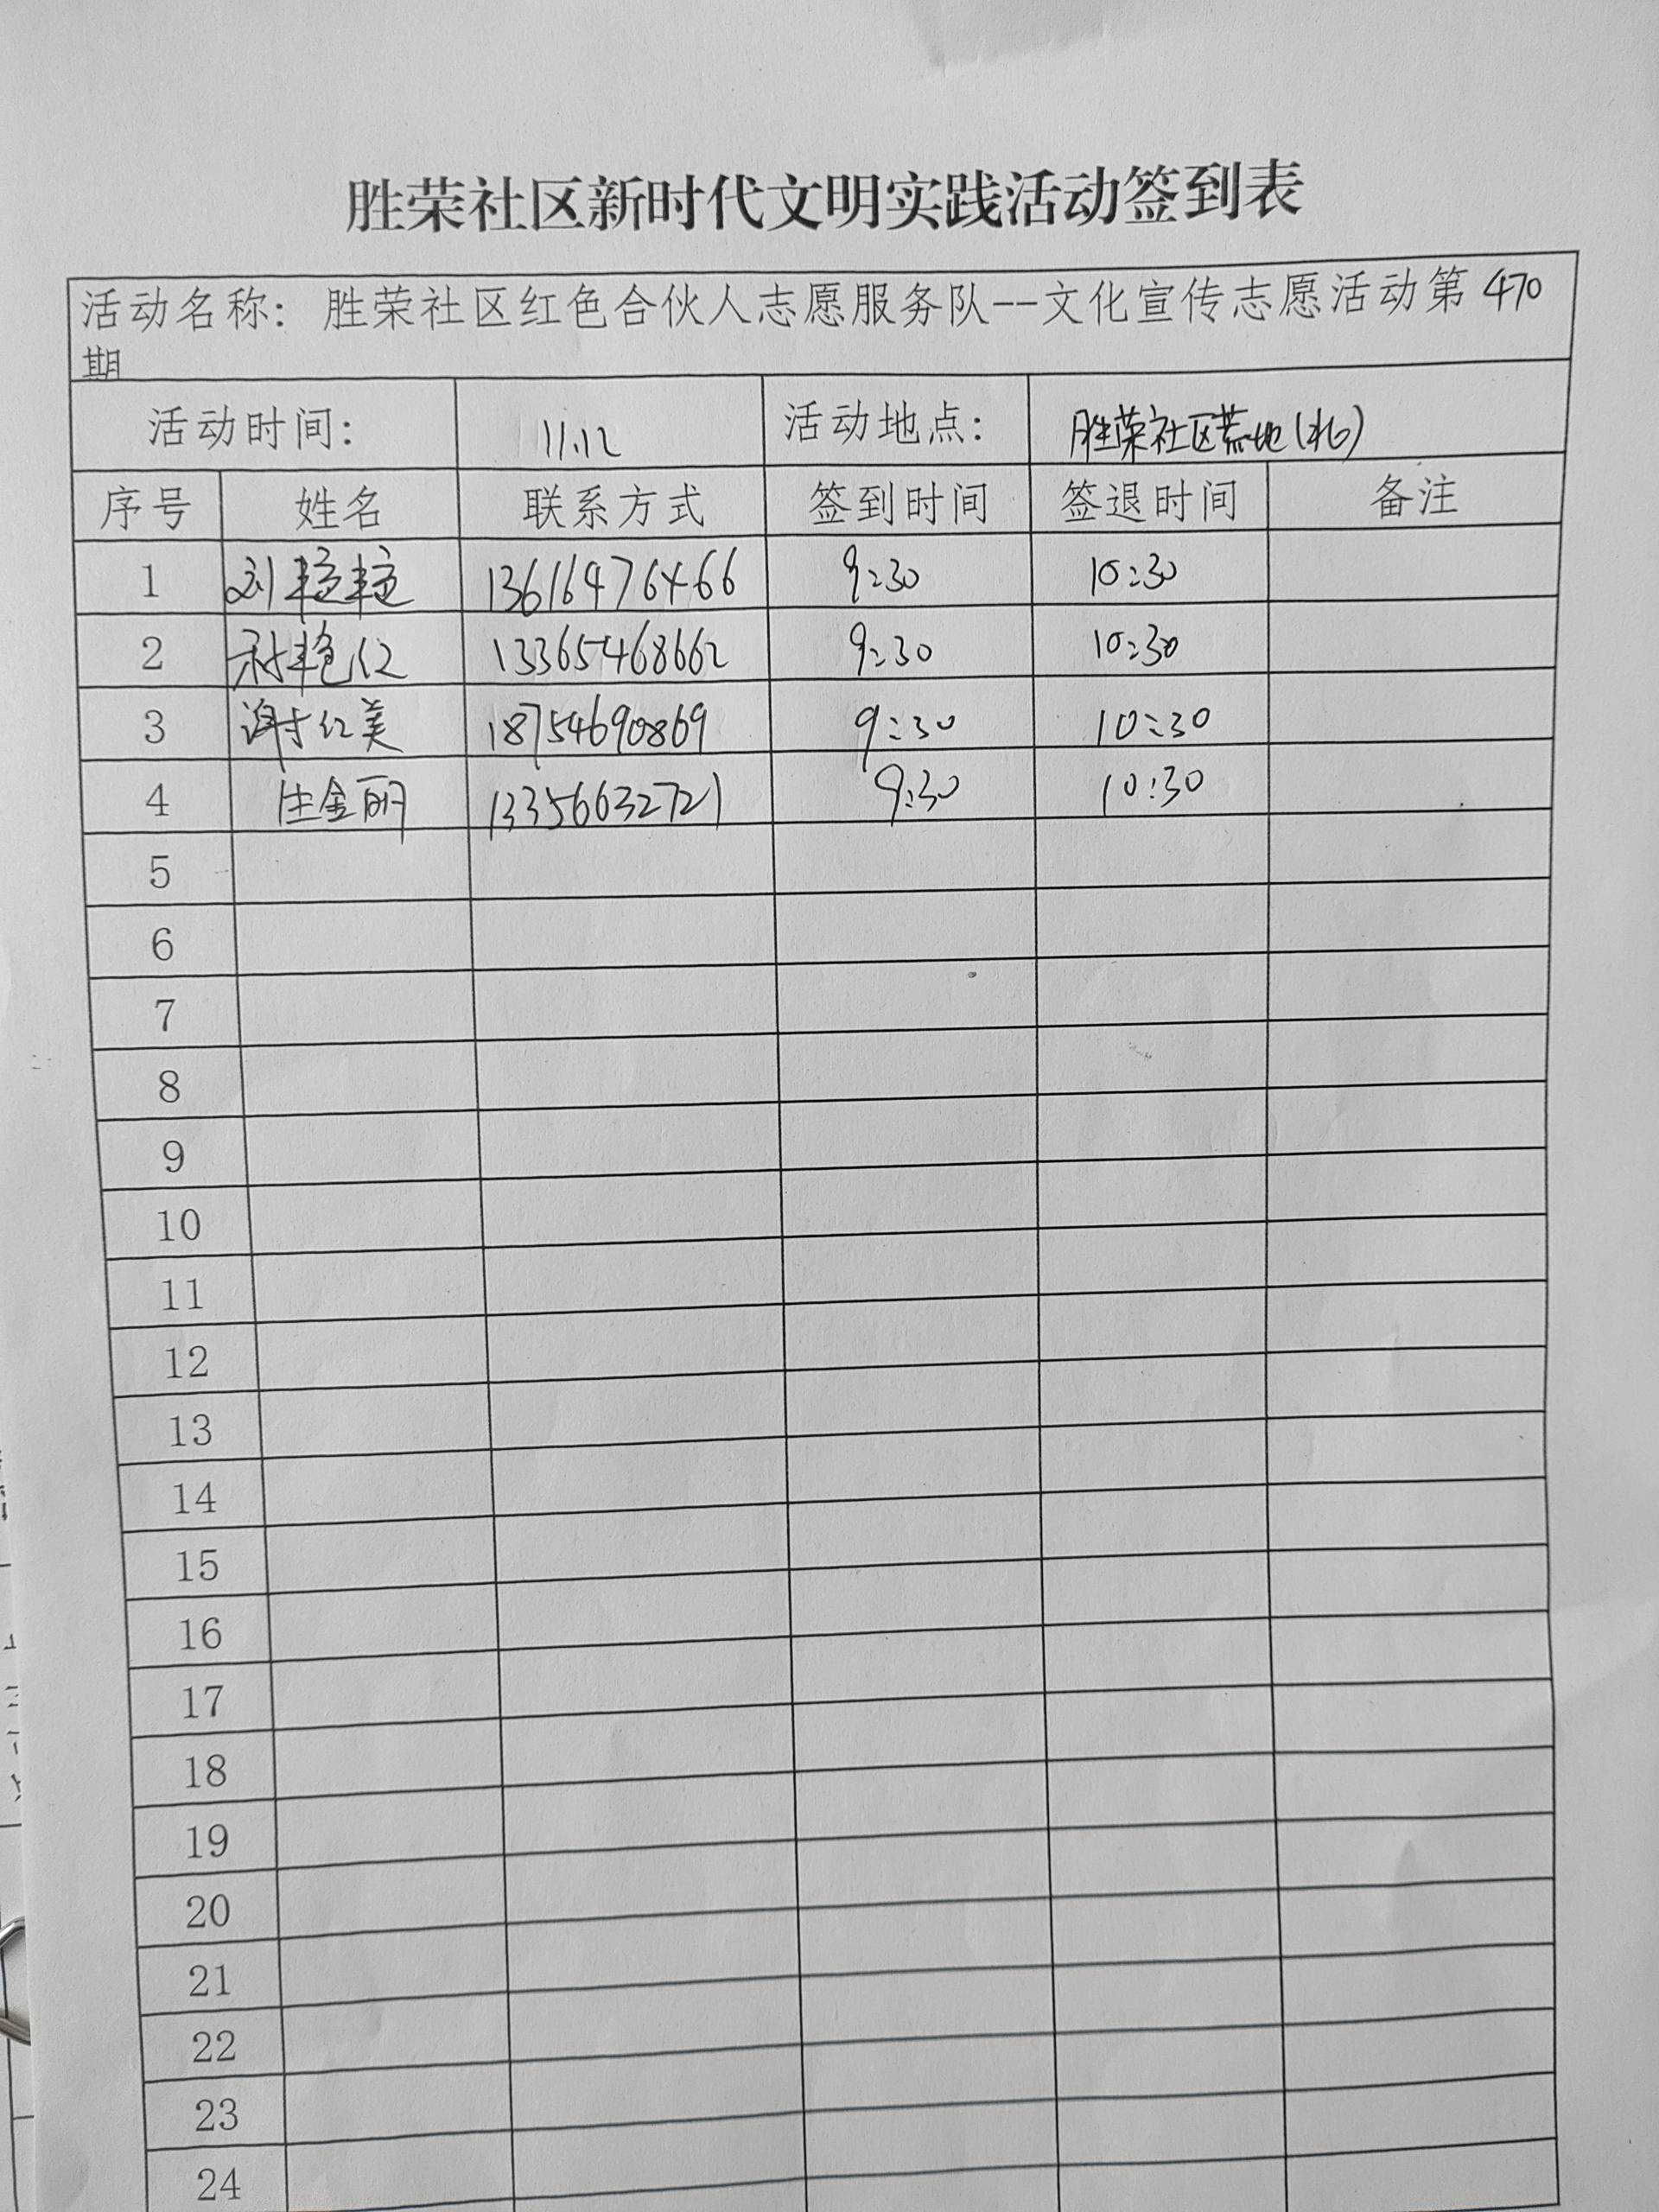 胜荣社区新时代文明实践活动签到表
活动名称：胜荣社区红色合伙人志愿服务队--文化宣传志愿活动第 470
期
活动时间： 11.12 活动地点： 胜荣社区荒地(北)
序号 姓名 联系方式 签到时间 签退时间 备注
1 刘艳艳 13616476466 9:30 10:30
2 艳红 13365468662 9:30 10:30
3 谢红美 18754690869 9:30 10:30
4 金丽 13356632721 9:30 10:30
5
6
7
8
9
10
11
12
13
14
15
16
17
18
19
20
21
22
23
24